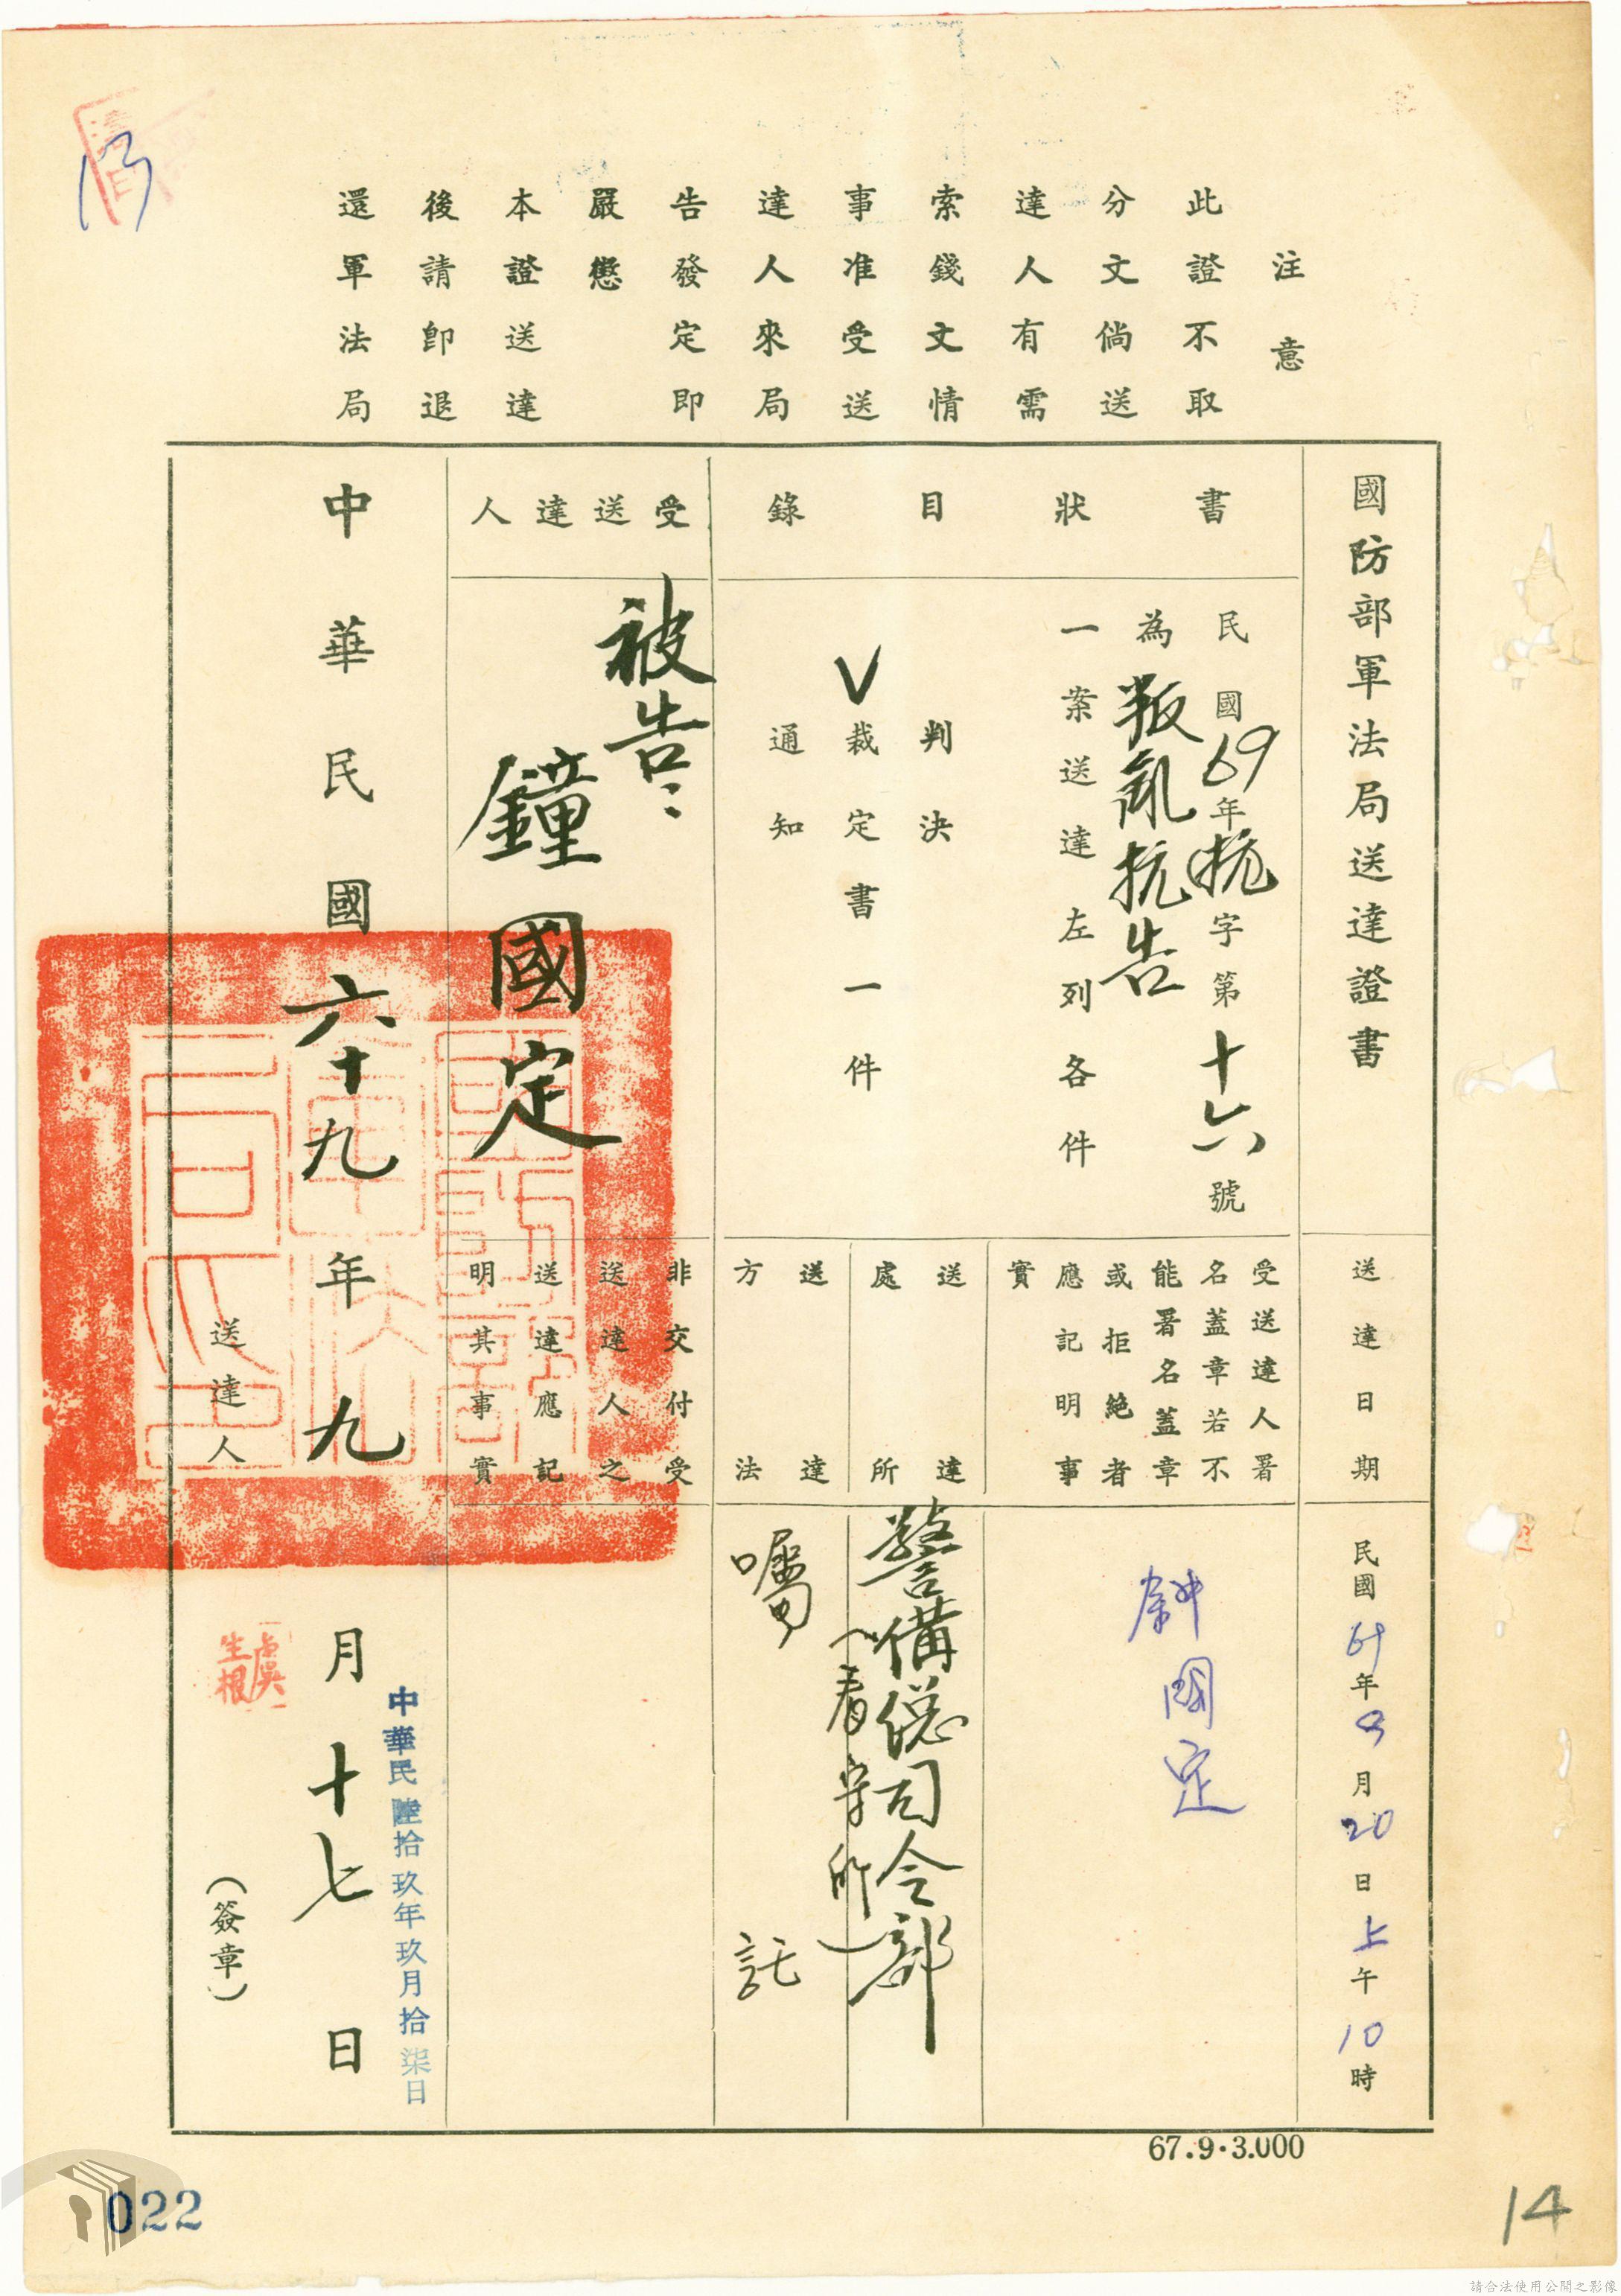 注意
此證不取
分文倘送
達人有需
索錢文情
事准受送
達人來局
告發定即
嚴懲
本證送達
後請卽退
還軍法局
國防部軍法局送達證書
送達日期
民國69年9月20日上午10時
書狀目錄
民國69年抗字第十六號
為叛亂抗告
一案送達左列各件
判決
V裁定書一件
通知
受送達人署
名蓋章若不
能署名蓋章
或拒絶者
應記明事
實
鍾國定
送達
處所
警備總司令部
(看守所)
送達
方法
囑託
受送達人
被告:
鐘國定
非交付受
送達人之
送達應記
明其事實
中華民國六十九年九月十七日
中華民陸拾玖年玖月拾柒日
送達人
虞生根
(簽章)
67.9.3.000
13
14
022
請合法使用公開之影像